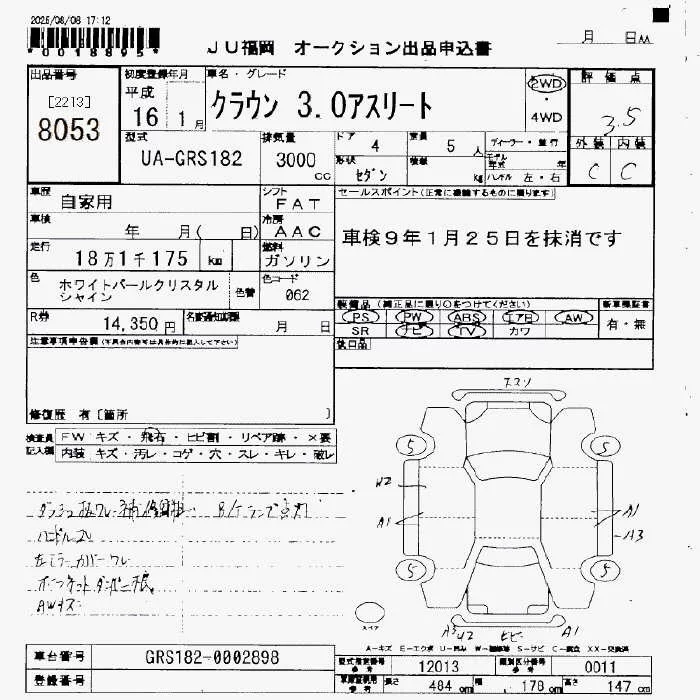 2025/08/08 17:12
*00188895*
JU福岡 オークション出品申込書
月 日AA
出品番号
[2213]
8053
初度登録年月
平成
16 1月
車名・グレード
クラウン 3.0アスリート
2WD
・
4WD
評価点
3.5
外装 内装
C C
型式
UA-GRS182
排気量
3000 cc
ドア 4
定員 5 人
形状 セダン
積載 Kg
ディーラー・並行
モデル年式 年
ハンドル 左・右
車歴
自家用
シフト
FAT
セールスポイント(正常に機能するものに限ります)
車検9年1月25日を抹消です
車検
年 月( 日)
冷房
AAC
走行
18万1千175 km
燃料
ガソリン
色
ホワイトパールクリスタル
シャイン
色替
色コード
062
装備品(純正品に限り○をつけてください)
PS PW ABS エアB AW
SR ナビ TV カワ
新車保証書
有・無
後日品
R券
14,350 円
名変通知期限
月 日
注意事項申告欄
修復歴 有[箇所 ]
検査員
記入欄
FW キズ・飛石・ヒビ割・リペア跡・×要
内装 キズ・汚レ・コゲ・穴・スレ・キレ・破レ
B/Tランプ点灯
ハンドルスレ
左ミラーカバーワレ
AWキズ
5 5
W2
A1
A1
A3
5 5
スペア
A1
A-キズ E-エクボ U-凹み W-補修跡 S-サビ C-腐食 XX-交換済
車台番号
GRS182-0002898
登録番号
型式指定番号
12013
類別区分番号
0011
長さ 484 cm
幅 178 cm
高さ 147 cm